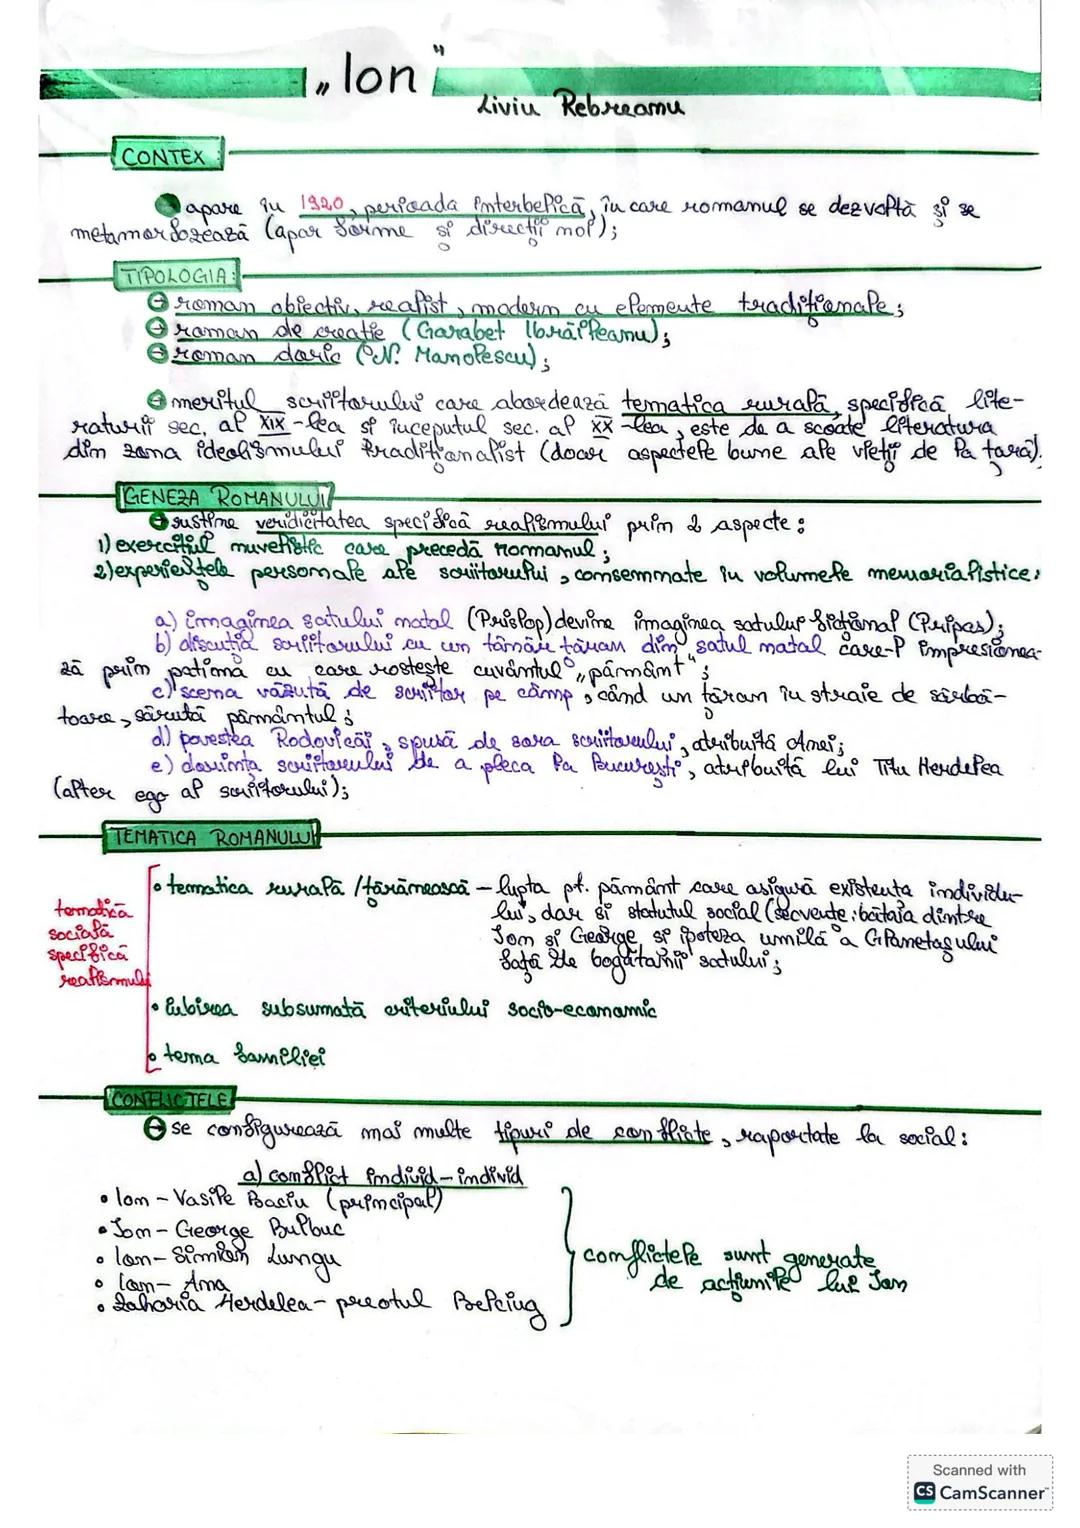 „Ion"
Liviu Rebreanu
CONTEX
apare în 1920, perioada interbelică, în care romanul se dezvoltă și se
metamorfozează (apar forme și direcții noi);
TIPOLOGIA:
roman obiectiv, realist, modern cu elemente tradiționale;
roman de creație (Garabet Ibrăileanu);
roman doric (N. Manolescu);
meritul scriitorului care abordează tematica rurală, specifică lite-
raturii sec. al XIX-lea și începutul sec. al XX-lea, este de a scoate literatura
din zona idealismului tradiționalist (doar aspectele bune ale vieții de la țară).
GENEZA ROMANULUI
susține veridicitatea specifică realismului prin 2 aspecte:
1) exercițiul nuvelistic care precedă romanul;
2) experiențele personale ale scriitorului, consemnate în volumele memorialistice:
a) imaginea satului natal (Prislop) devine imaginea satului ficțional (Pripas);
b) discuția scriitorului cu un tânăr țăran din satul natal care-l impresionea-
ză prin patima cu care rostește cuvântul „pământ";
c) scena văzută de scriitor pe câmp, când un țăran în straie de sărbă-
toare, sărută pământul;
d) povestea Rodovicăi, spusă de sora scriitorului, atribuită Anei;
e) dorința scriitorului de a pleca la București, atribuită lui Titu Herdelea
(alter ego al scriitorului);
TEMATICA ROMANULUI
tematică
socială
specifică
realismului
• tematica rurală /țărănească – lupta pt. pământ care asigură existența individu-
lui, dar și statutul social (secvențe: bătaia dintre
Ion și George, și ipoteza umilă a Glanetașului
față de bogătanii satului;
• iubirea subsumată criteriului socio-economic
• tema familiei
CONFLICTELE
se configurează mai multe tipuri de conflicte, raportate la social:
a) conflict individ-individ
• Ion – Vasile Baciu (principal)
• Ion – George Bulbuc
• Ion – Simion Lungu
• Ion – Ana
• Zaharia Herdelea – preotul Belciug
conflictele sunt generate
de acțiunile lui Ion
Scanned with
CS CamScanner